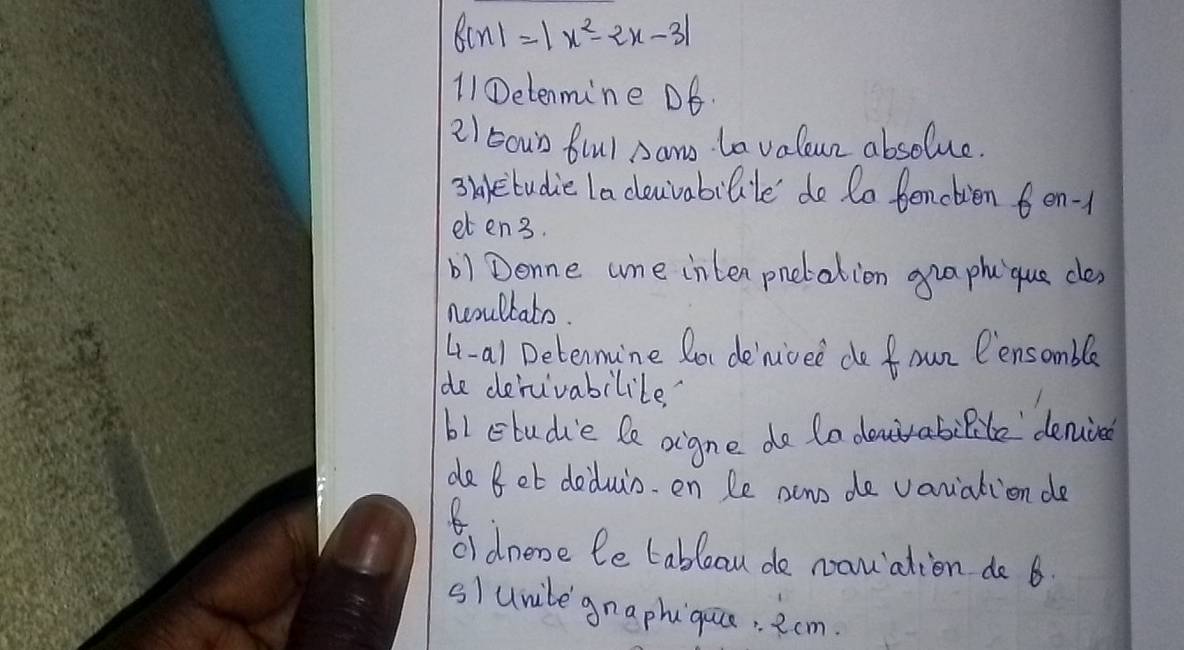 f(x) = |x² - 2x - 3|
1) Determine Df.
2) Ecris f(x) sans la valeur absolue.
3) a) Etudie la derivabilité de la fonction f en -1
et en 3.
b) Donne une interpretation graphique des
resultats.
4-a) Determine la dérivée de f sur l'ensemble
de derivabilité.
b) Etudie le signe de la derivée
de f et déduis-en le sens de variation de
f
c) dresse le tableau de variation de f.
5) Unité graphique : 2cm.